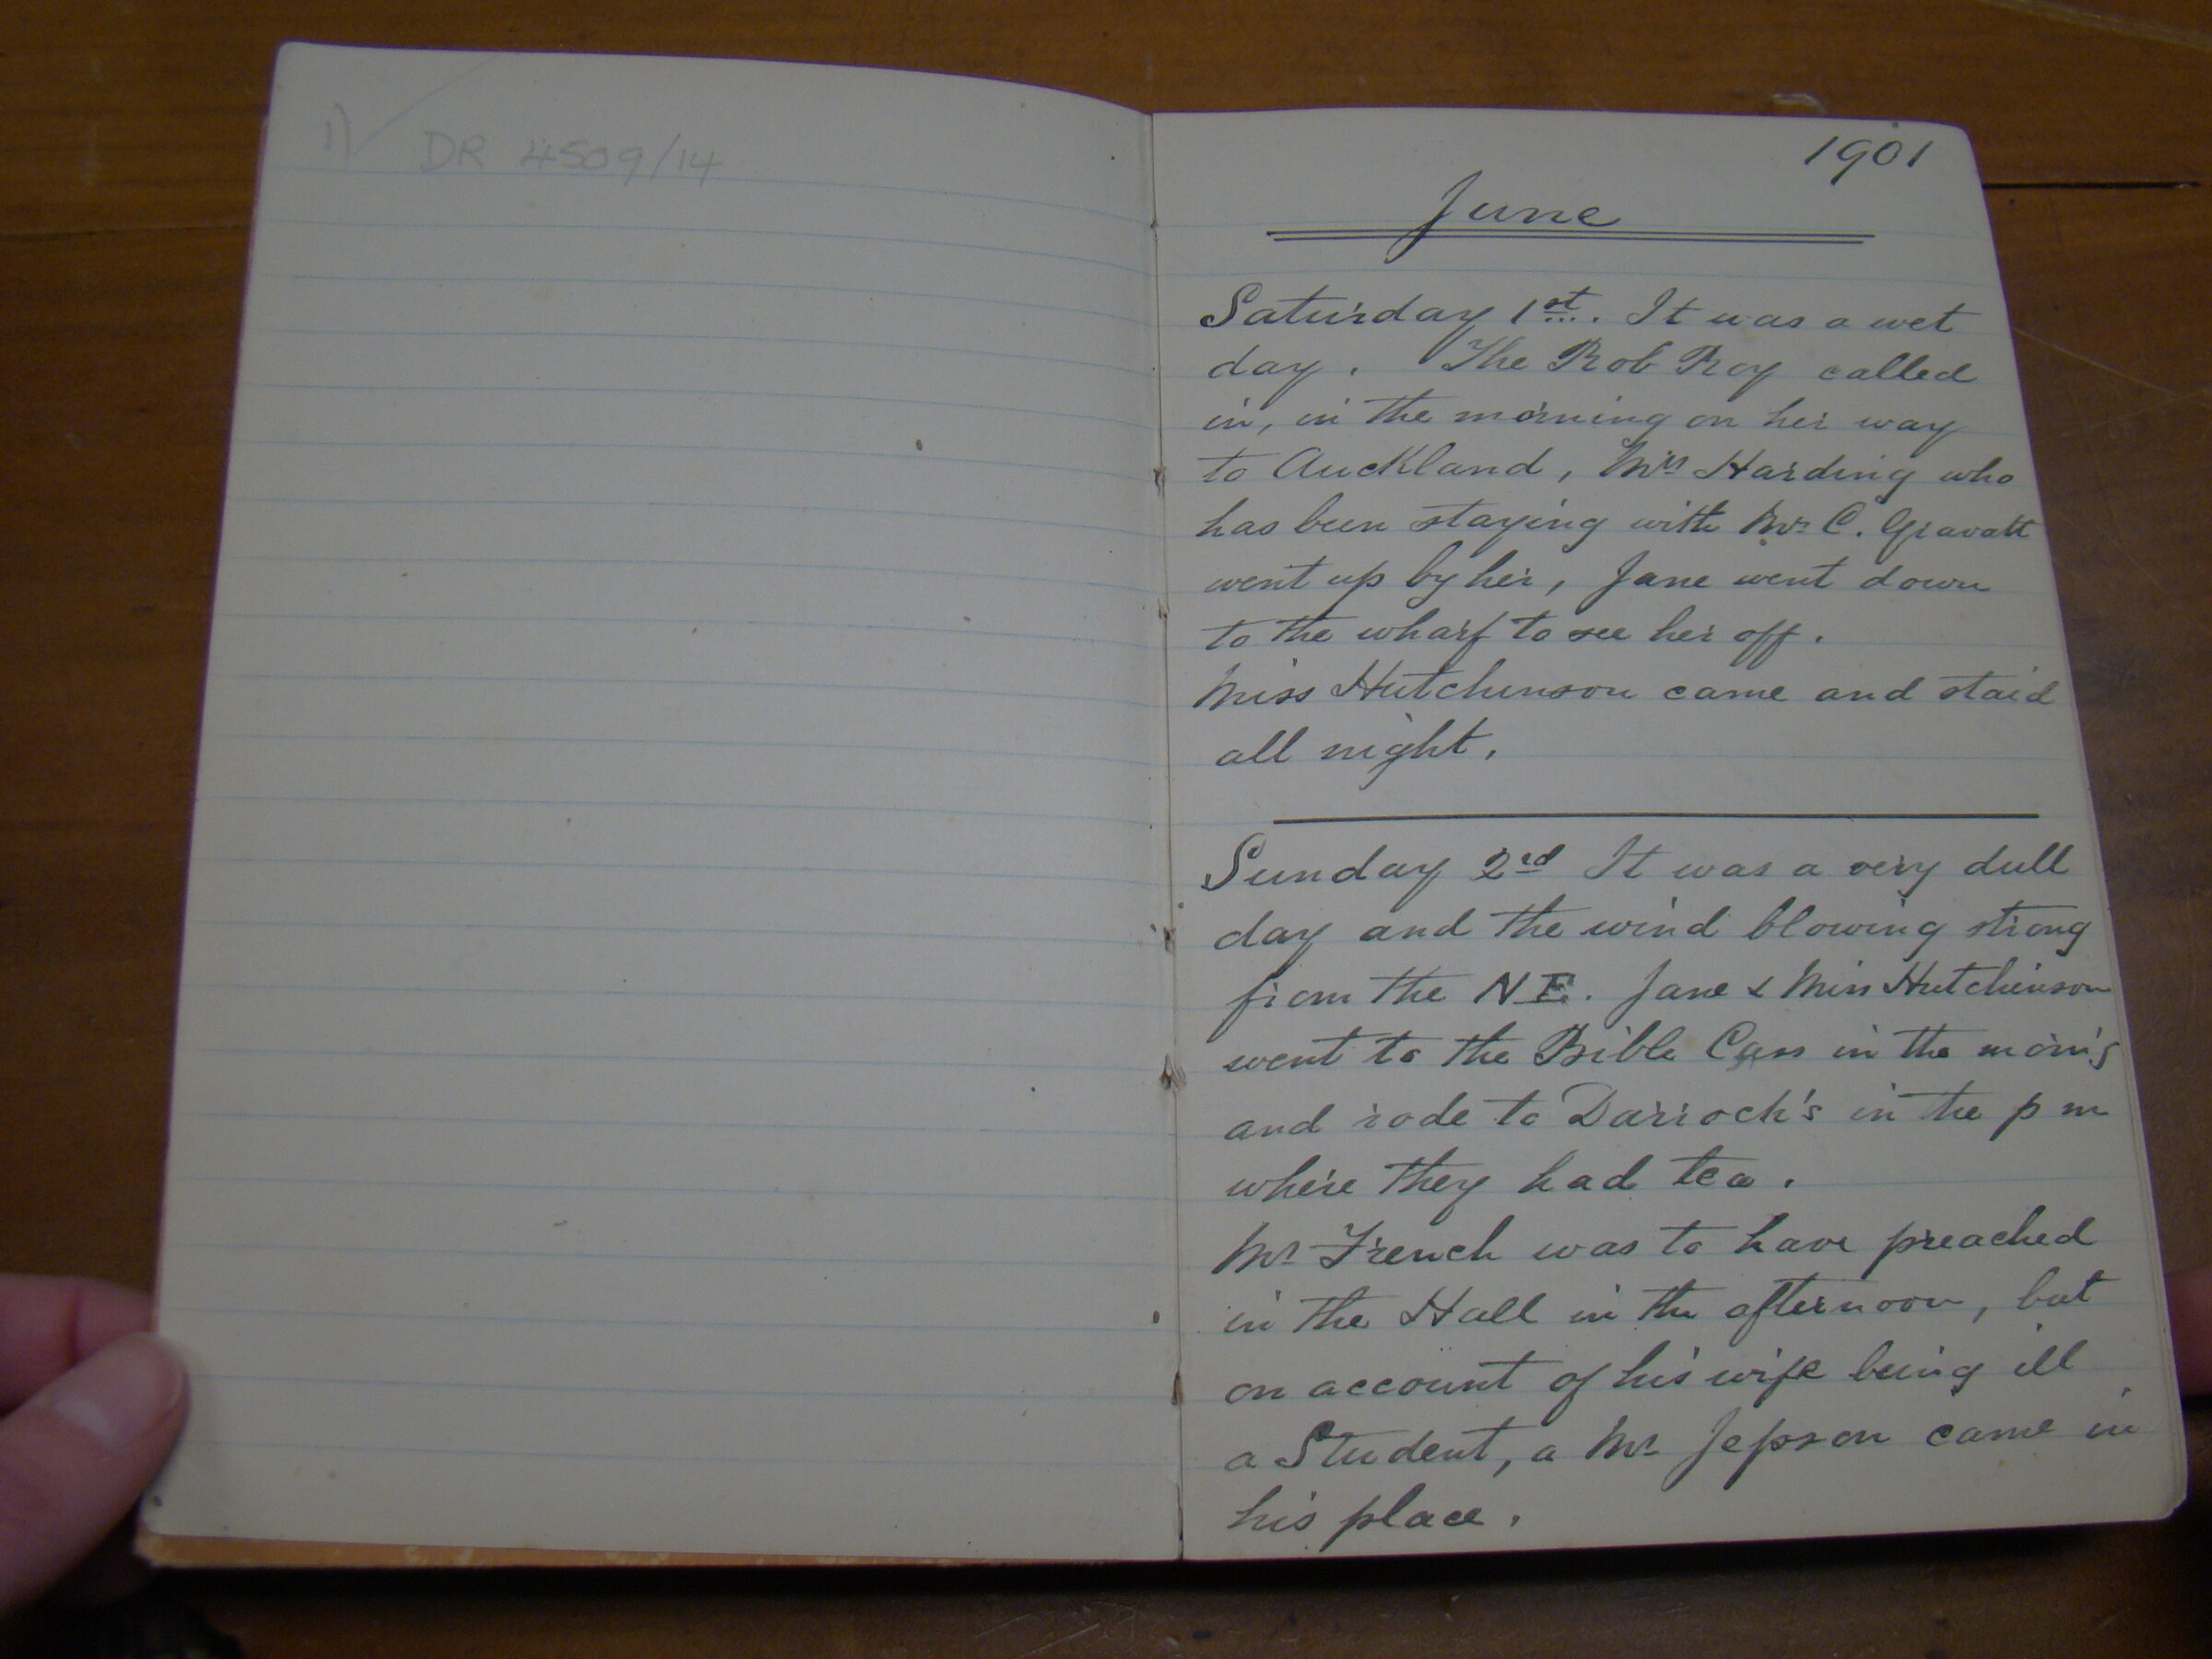 DR 4509/14
1901
June
Saturday 1st. It was a wet
day. The Rob Roy called
in, in the morning on her way
to Auckland, Mrs Harding who
has been staying with Mr C. Gravatt
went up by her, Jane went down
to the wharf to see her off.
Miss Hutchinson came and staid
all night.
Sunday 2rd It was a very dull
day and the wind blowing strong
from the NE. Jane & Miss Hutchinson
went to the Bible Cass in the morn'g
and rode to Darroch's in the p m
where they had tea.
Mr French was to have preached
in the Hall in the afternoon, but
on account of his wife being ill
a Student, a Mr Jepson came in
his place.